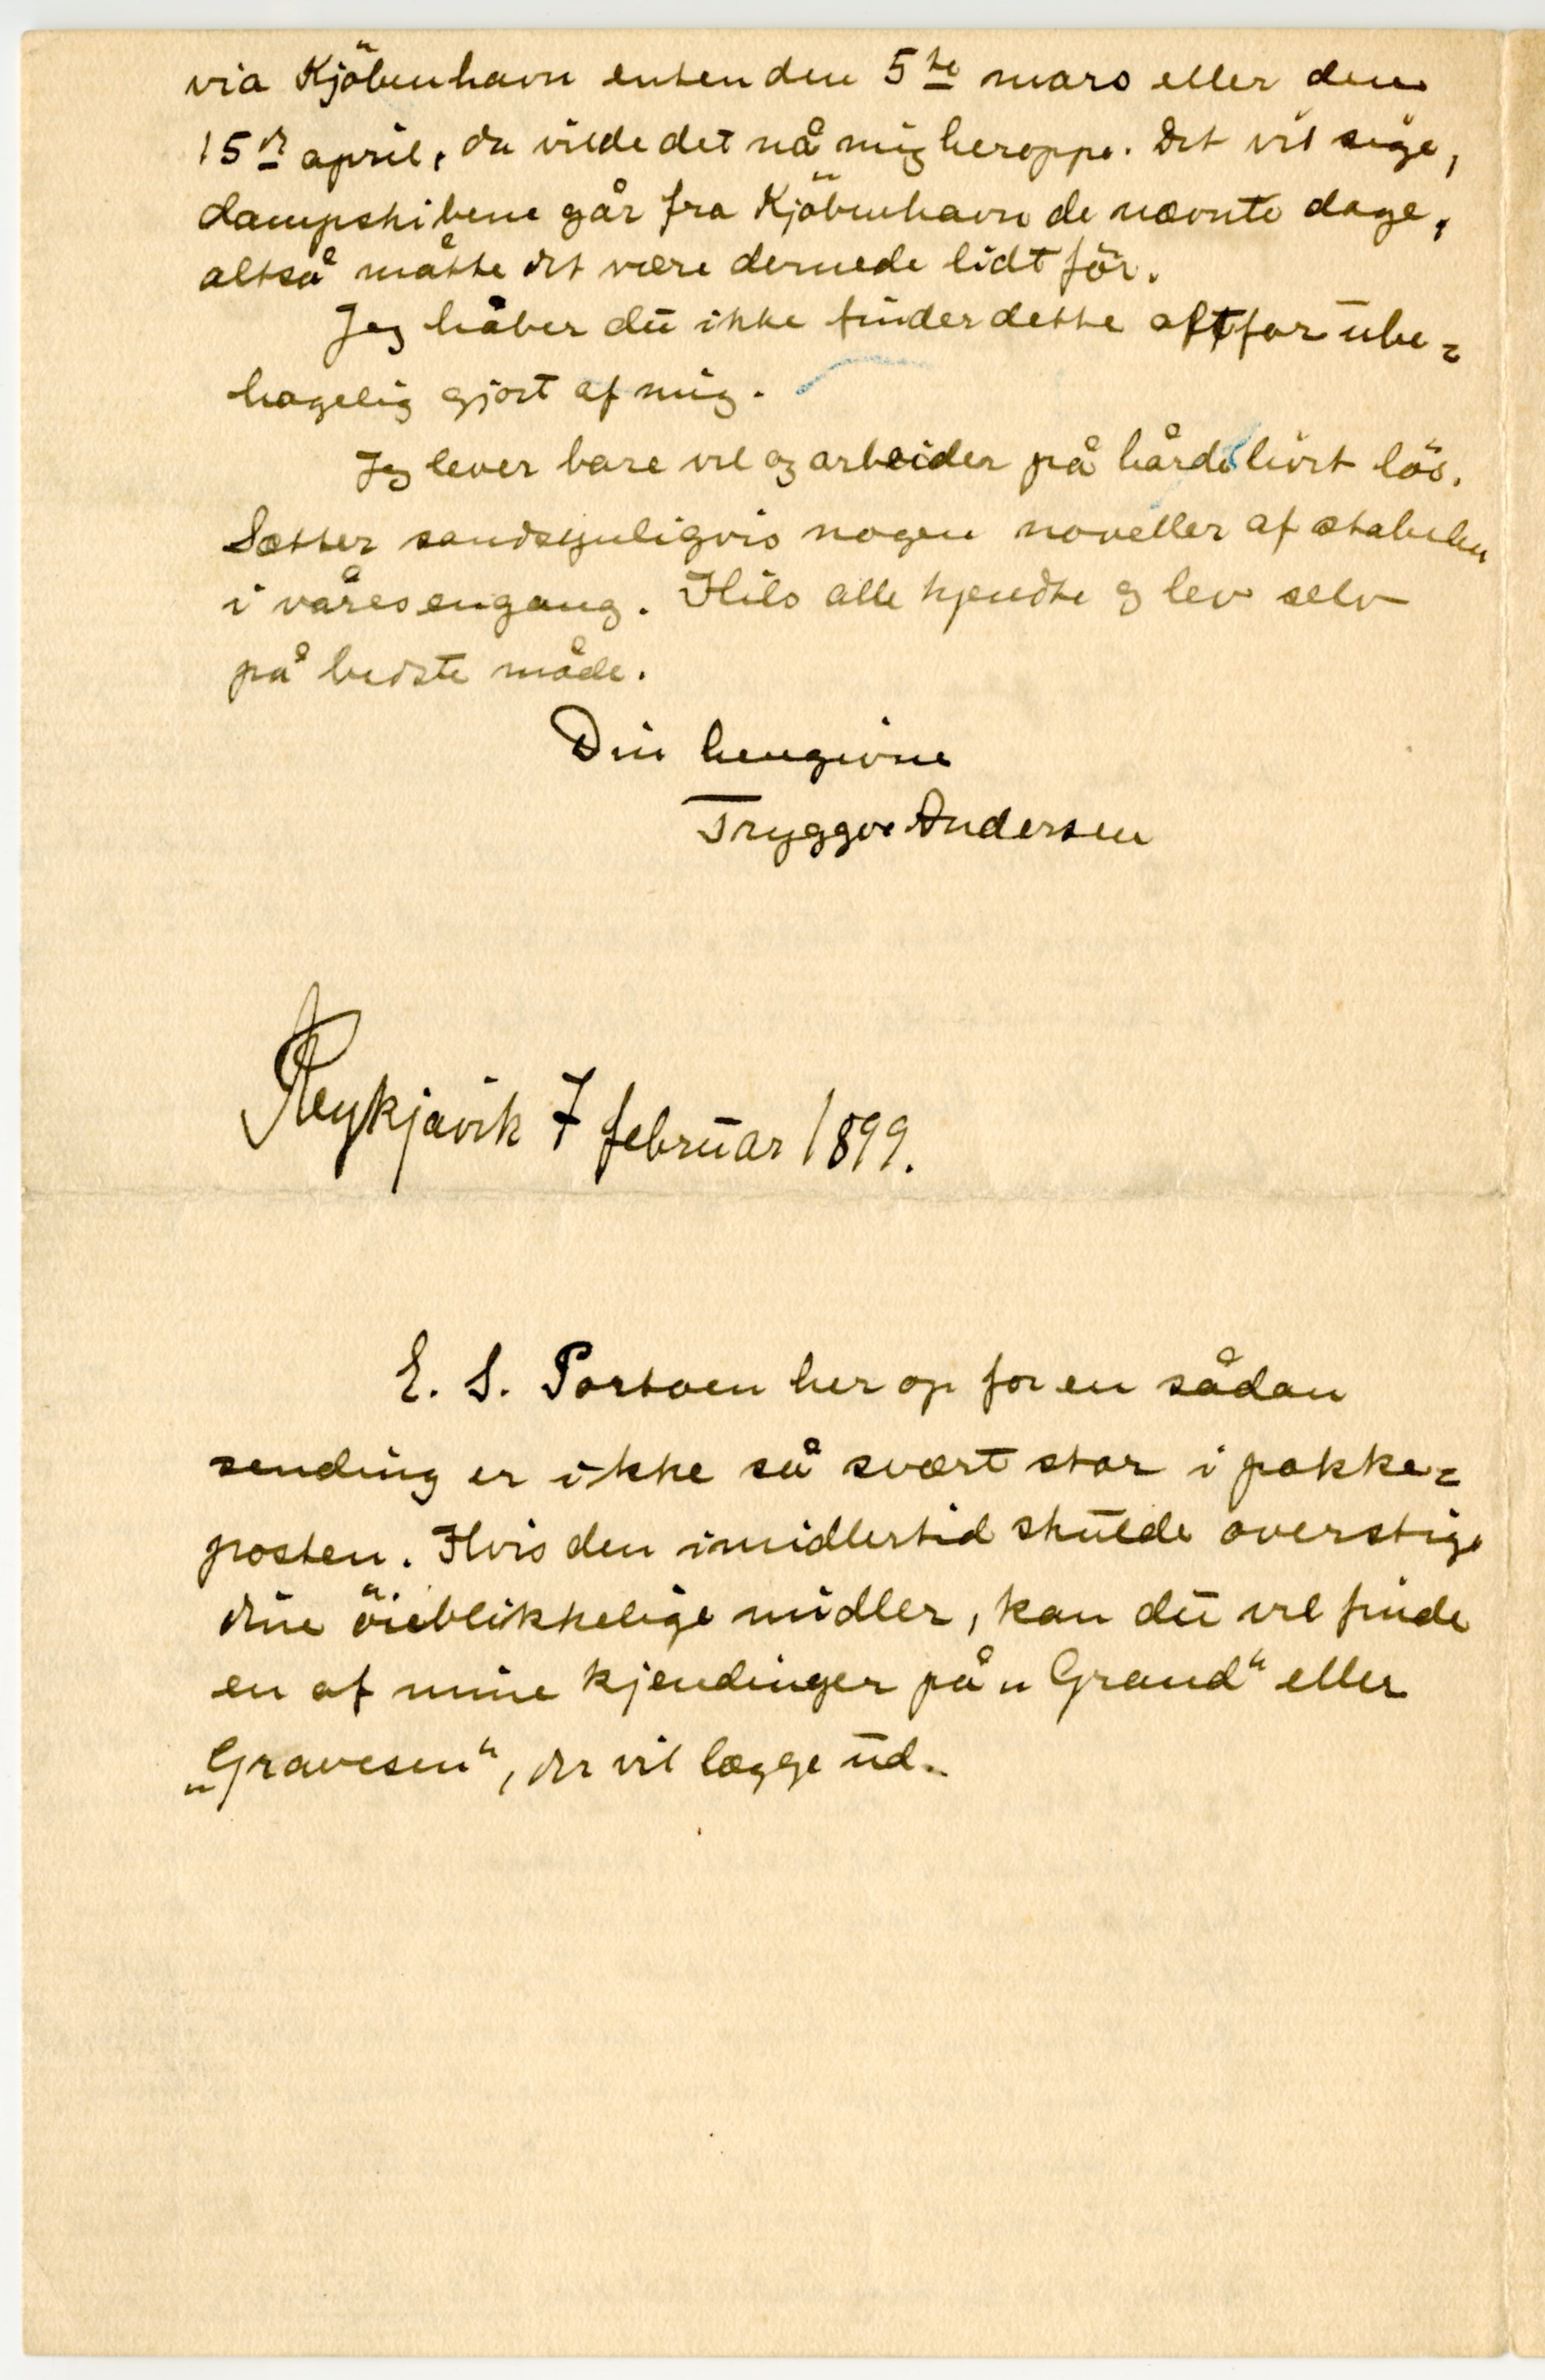 via Kjöbenhavn enten den 5te mars eller den
15de april, da vilde det nå mig heroppe. Det vil sige,
dampskibene går fra Kjöbenhavn de nævnte dage,
altså måtte det være dernede lidt för.
Jeg håber du ikke finder dette altfor ube=
hagelig gjort af mig.
Jeg lever bare vel og arbeider på hårde livet lös.
Sætter sandsynligvis nogen noveller af stabelen
i våres engang. Hils alle kjendte og lev selv
på bedste måde.
Din hengivne
Tryggve Andersen
Reykjavik 7 februar 1899.
E. S. Portoen her op for en sådan
sending er ikke så svært stor i pakke=
posten. Hvis den imidlertid skulde overstige
dine öieblikkelige midler, kan du vel finde
en af mine kjendinger på „Grand“ eller
„Gravesen“, der vil lægge ud.